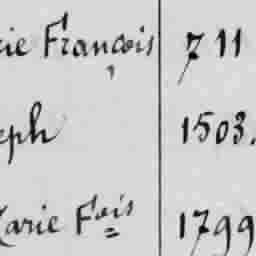 rie François 711
eph 1503.
Marie Fois 1799